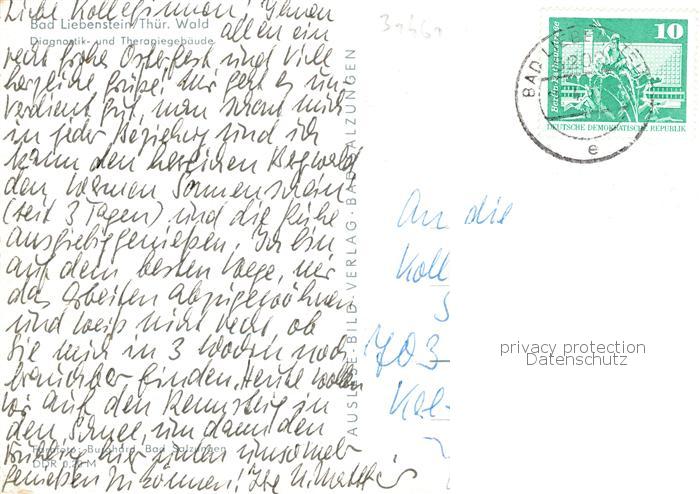 Liebe Kolleginnen! Ihnen
Bad Liebenstein/Thür. Wald
allen ein
Diagnostik- und Therapiegebäude
recht frohes Osterfest und viele
herzliche Grüße! Mir geht es un-
verdient gut, man schont mich
in jeder Beziehung und ich
kann den herrlichen Bergwald
den warmen Sonnenschein
(seit 3 Tagen) und die Ruhe
ausgiebig genießen. Ich bin
auf dem besten Wege, mir
das Arbeiten abzugewöhnen
und weiß nicht recht, ob
Sie mich in 3 Wochen noch
brauchbar finden. Heute wollen
wir auf den Rennsteig in
den Schnee, um dann den
Frühling hier unten umso mehr
Farbfoto: Burghard, Bad Salzungen
genießen zu können! Ihre
DDR 0,20 M
AUSLESE-BILD-VERLAG · BAD SALZUNGEN
10
Berlin, Rathausstraße
DEUTSCHE DEMOKRATISCHE REPUBLIK
BAD LIEBENSTEIN
e
An die
Koll
703
privacy protection
Datenschutz